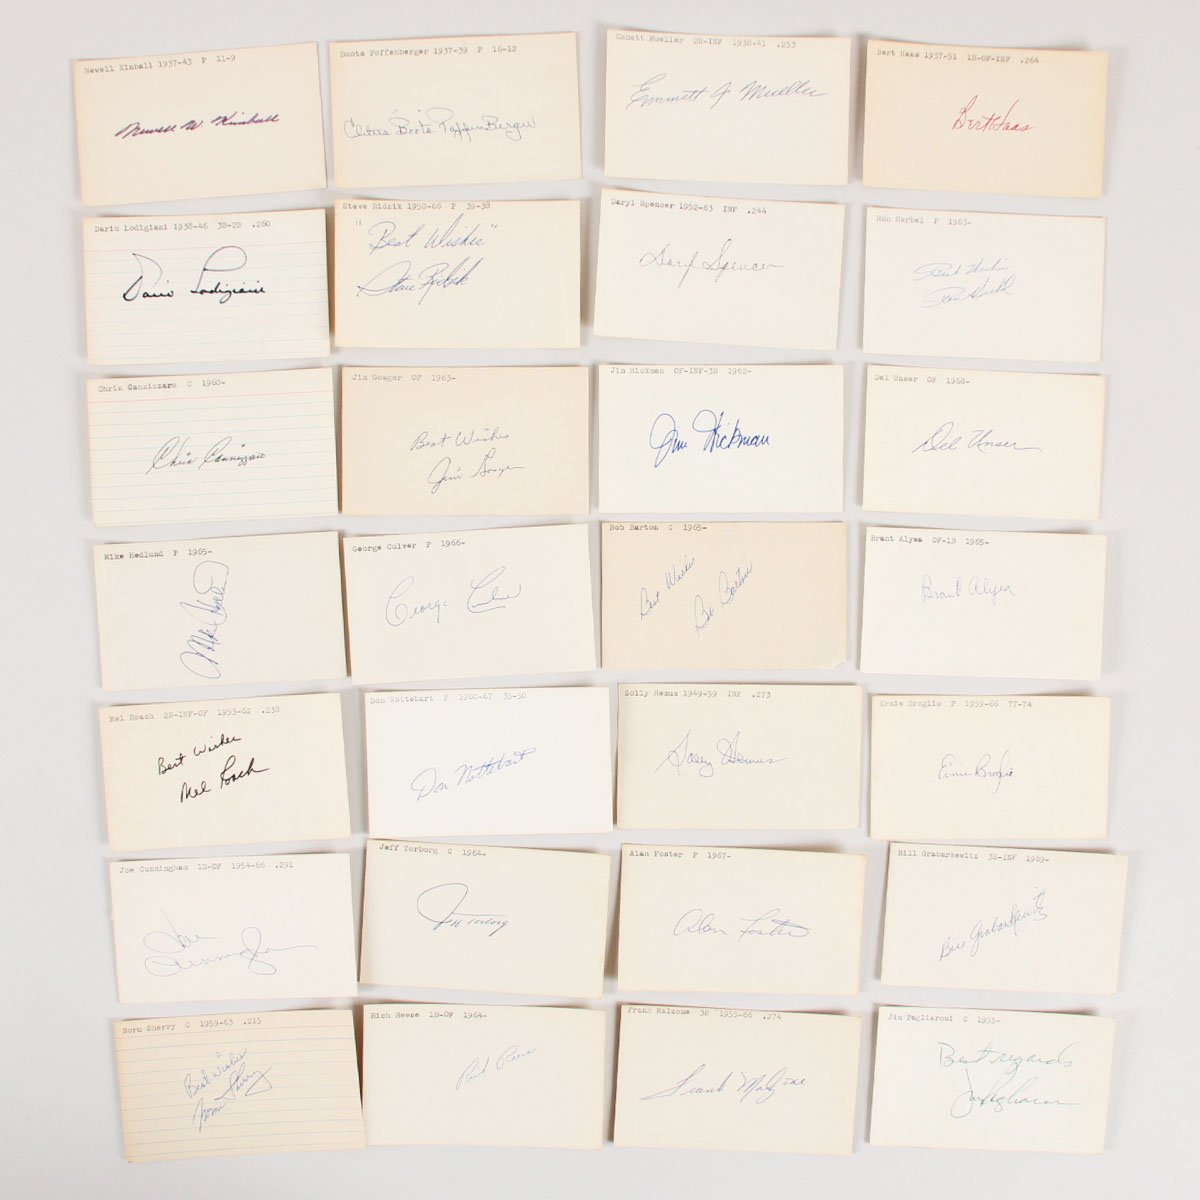 Newell Kimball 1937-43 P 11-9
Newell W. Kimball
Boots Poffenberger 1937-39 P 16-12
Cletus Boots Poffenberger
Emmett Mueller 2B-INF 1938-41 .253
Emmett J Mueller
Bert Haas 1937-51 1B-OF-INF .264
Bert Haas
Dario Lodigiani 1938-46 3B-2B .260
Dario Lodigiani
Steve Ridzik 1950-66 P 39-38
"Best Wishes"
Steve Ridzik
Daryl Spencer 1952-63 INF .244
Daryl Spencer
Ron Herbel P 1963-
Ron Herbel
Chris Cannizzaro C 1960-
Chris Cannizzaro
Jim Gosger OF 1963-
Best Wishes
Jim Gosger
Jim Hickman OF-INF-3B 1962-
Jim Hickman
Del Unser OF 1968-
Del Unser
Mike Hedlund P 1965-
Mike Hedlund
George Culver P 1966-
George Culver
Bob Barton C 1965-
Best Wishes
Bob Barton
Brant Alyea OF-1B 1965-
Brant Alyea
Mel Roach 2B-INF-OF 1953-62 .238
Best Wishes
Mel Roach
Don Nottebart P 1960-67 35-50
Don Nottebart
Solly Hemus 1949-59 INF .273
Solly Hemus
Ernie Broglio P 1959-66 77-74
Ernie Broglio
Joe Cunningham 1B-OF 1954-66 .291
Joe Cunningham
Jeff Torborg C 1964-
Alan Foster P 1967-
Alan Foster
Bill Grabarkewitz 3B-INF 1969-
Bill Grabarkewitz
Norm Sherry C 1959-63 .215
Best Wishes
Norm Sherry
Rich Reese 1B-OF 1964-
Rich Reese
Frank Malzone 3B 1955-66 .274
Frank Malzone
Jim Pagliaroni C 1955-
Best regards
Jim Pagliaroni